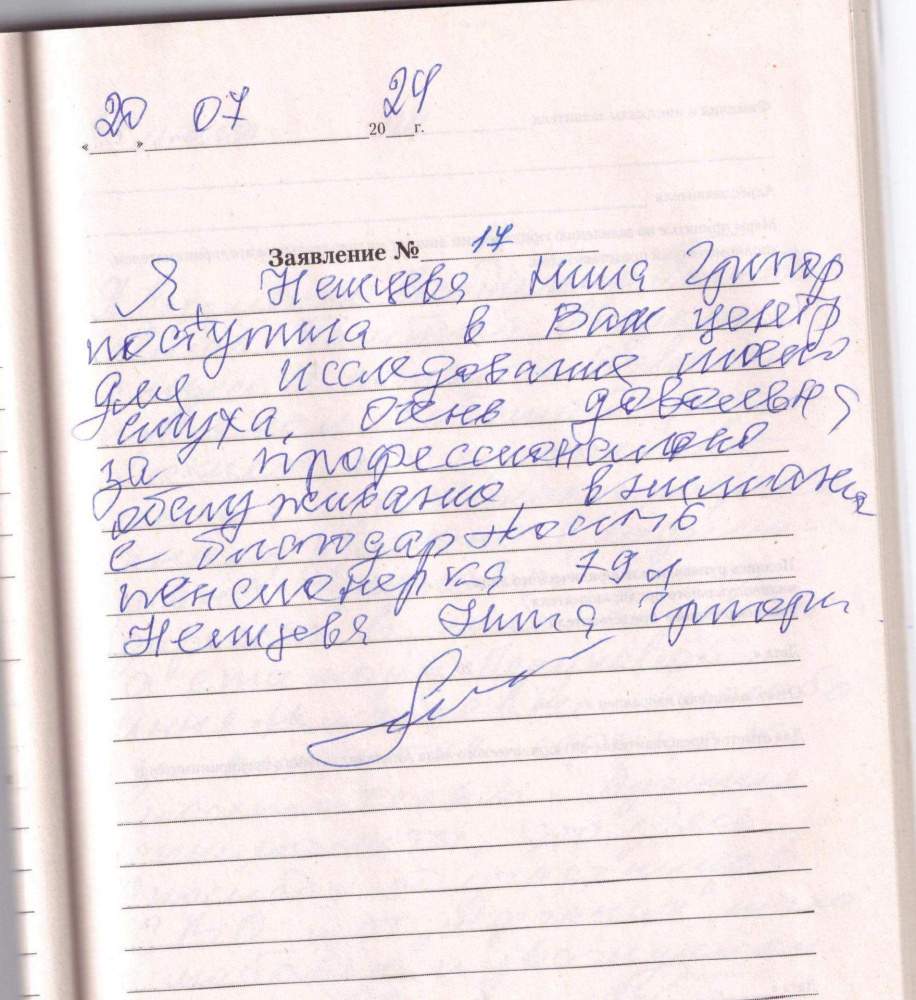 «20» 07 2024г.
Заявление № 17
Я, Немцева Нина Григор
поступила в Ваш центр
для исследование моего
слуха, очень довольня
за профессионально
обслуживанию, внимание
с благодарность
пенсионерка 79 л
Немцева Нина Григори